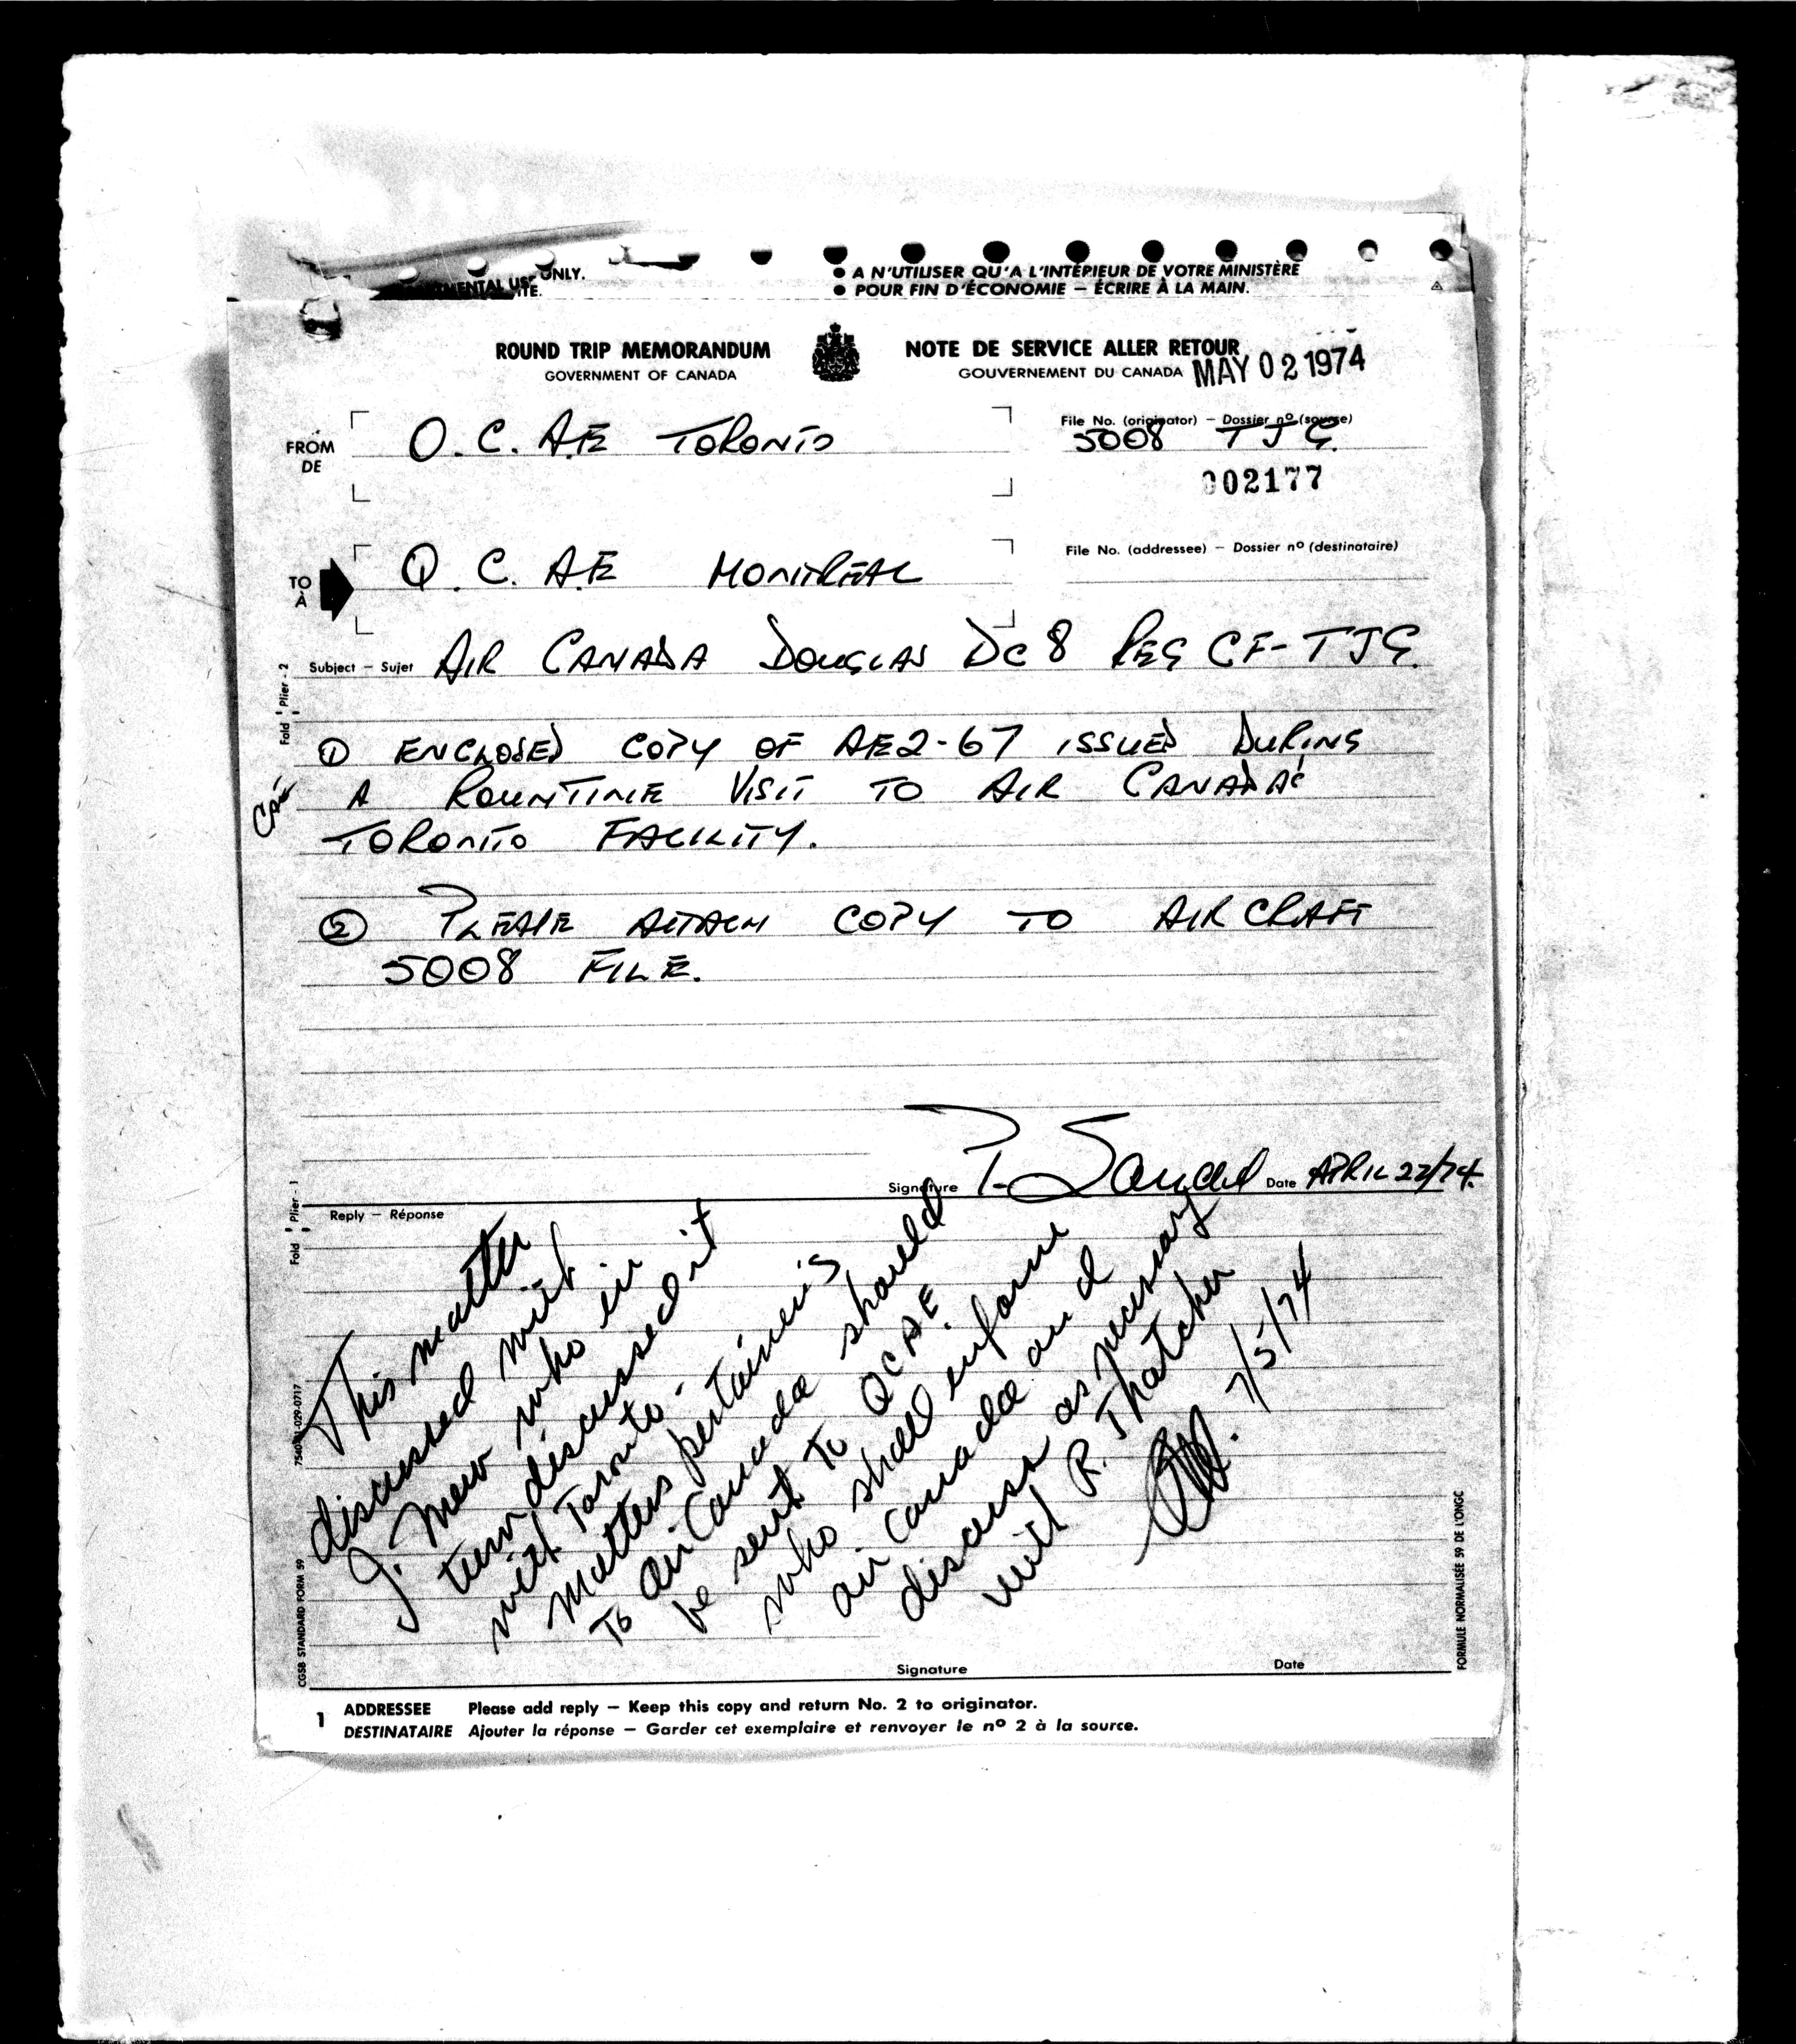 ONLY.
● A N'UTILISER QU'A L'INTÉRIEUR DE VOTRE MINISTÈRE
● POUR FIN D'ÉCONOMIE — ÉCRIRE À LA MAIN.
ROUND TRIP MEMORANDUM
GOVERNMENT OF CANADA
NOTE DE SERVICE ALLER RETOUR
GOUVERNEMENT DU CANADA
MAY 02 1974
FROM
DE
O.C. AE TORONTO
File No. (originator) — Dossier nº (source)
5008 TJG
002177
TO
À
Q.C. AE MONTREAL
File No. (addressee) — Dossier nº (destinataire)
Subject — Sujet AIR CANADA DOUGLAS DC8 REG CF-TJG.
Fold Plier - 2
① ENCLOSED COPY OF AE2-67 ISSUED DURING
A ROUNTINE VISIT TO AIR CANADAS
TORONTO FACILITY.
② PLEASE ATTACH COPY TO AIRCRAFT
5008 FILE.
Signature
Date APRIL 22/74.
Fold Plier - 1
Reply — Réponse
This matter
discussed with
J. Mew who in
turn discussed it
with Toronto -
matters pertaining
To air Canada should
be sent to QCAE
who shall inform
air Canada and
discuss as necessary
with R. Thatcher
7/5/74
7540-21-029-0717
CGSB STANDARD FORM 59
FORMULE NORMALISÉE 59 DE L'ONGC
Signature
Date
1 ADDRESSEE Please add reply — Keep this copy and return No. 2 to originator.
DESTINATAIRE Ajouter la réponse — Garder cet exemplaire et renvoyer le nº 2 à la source.